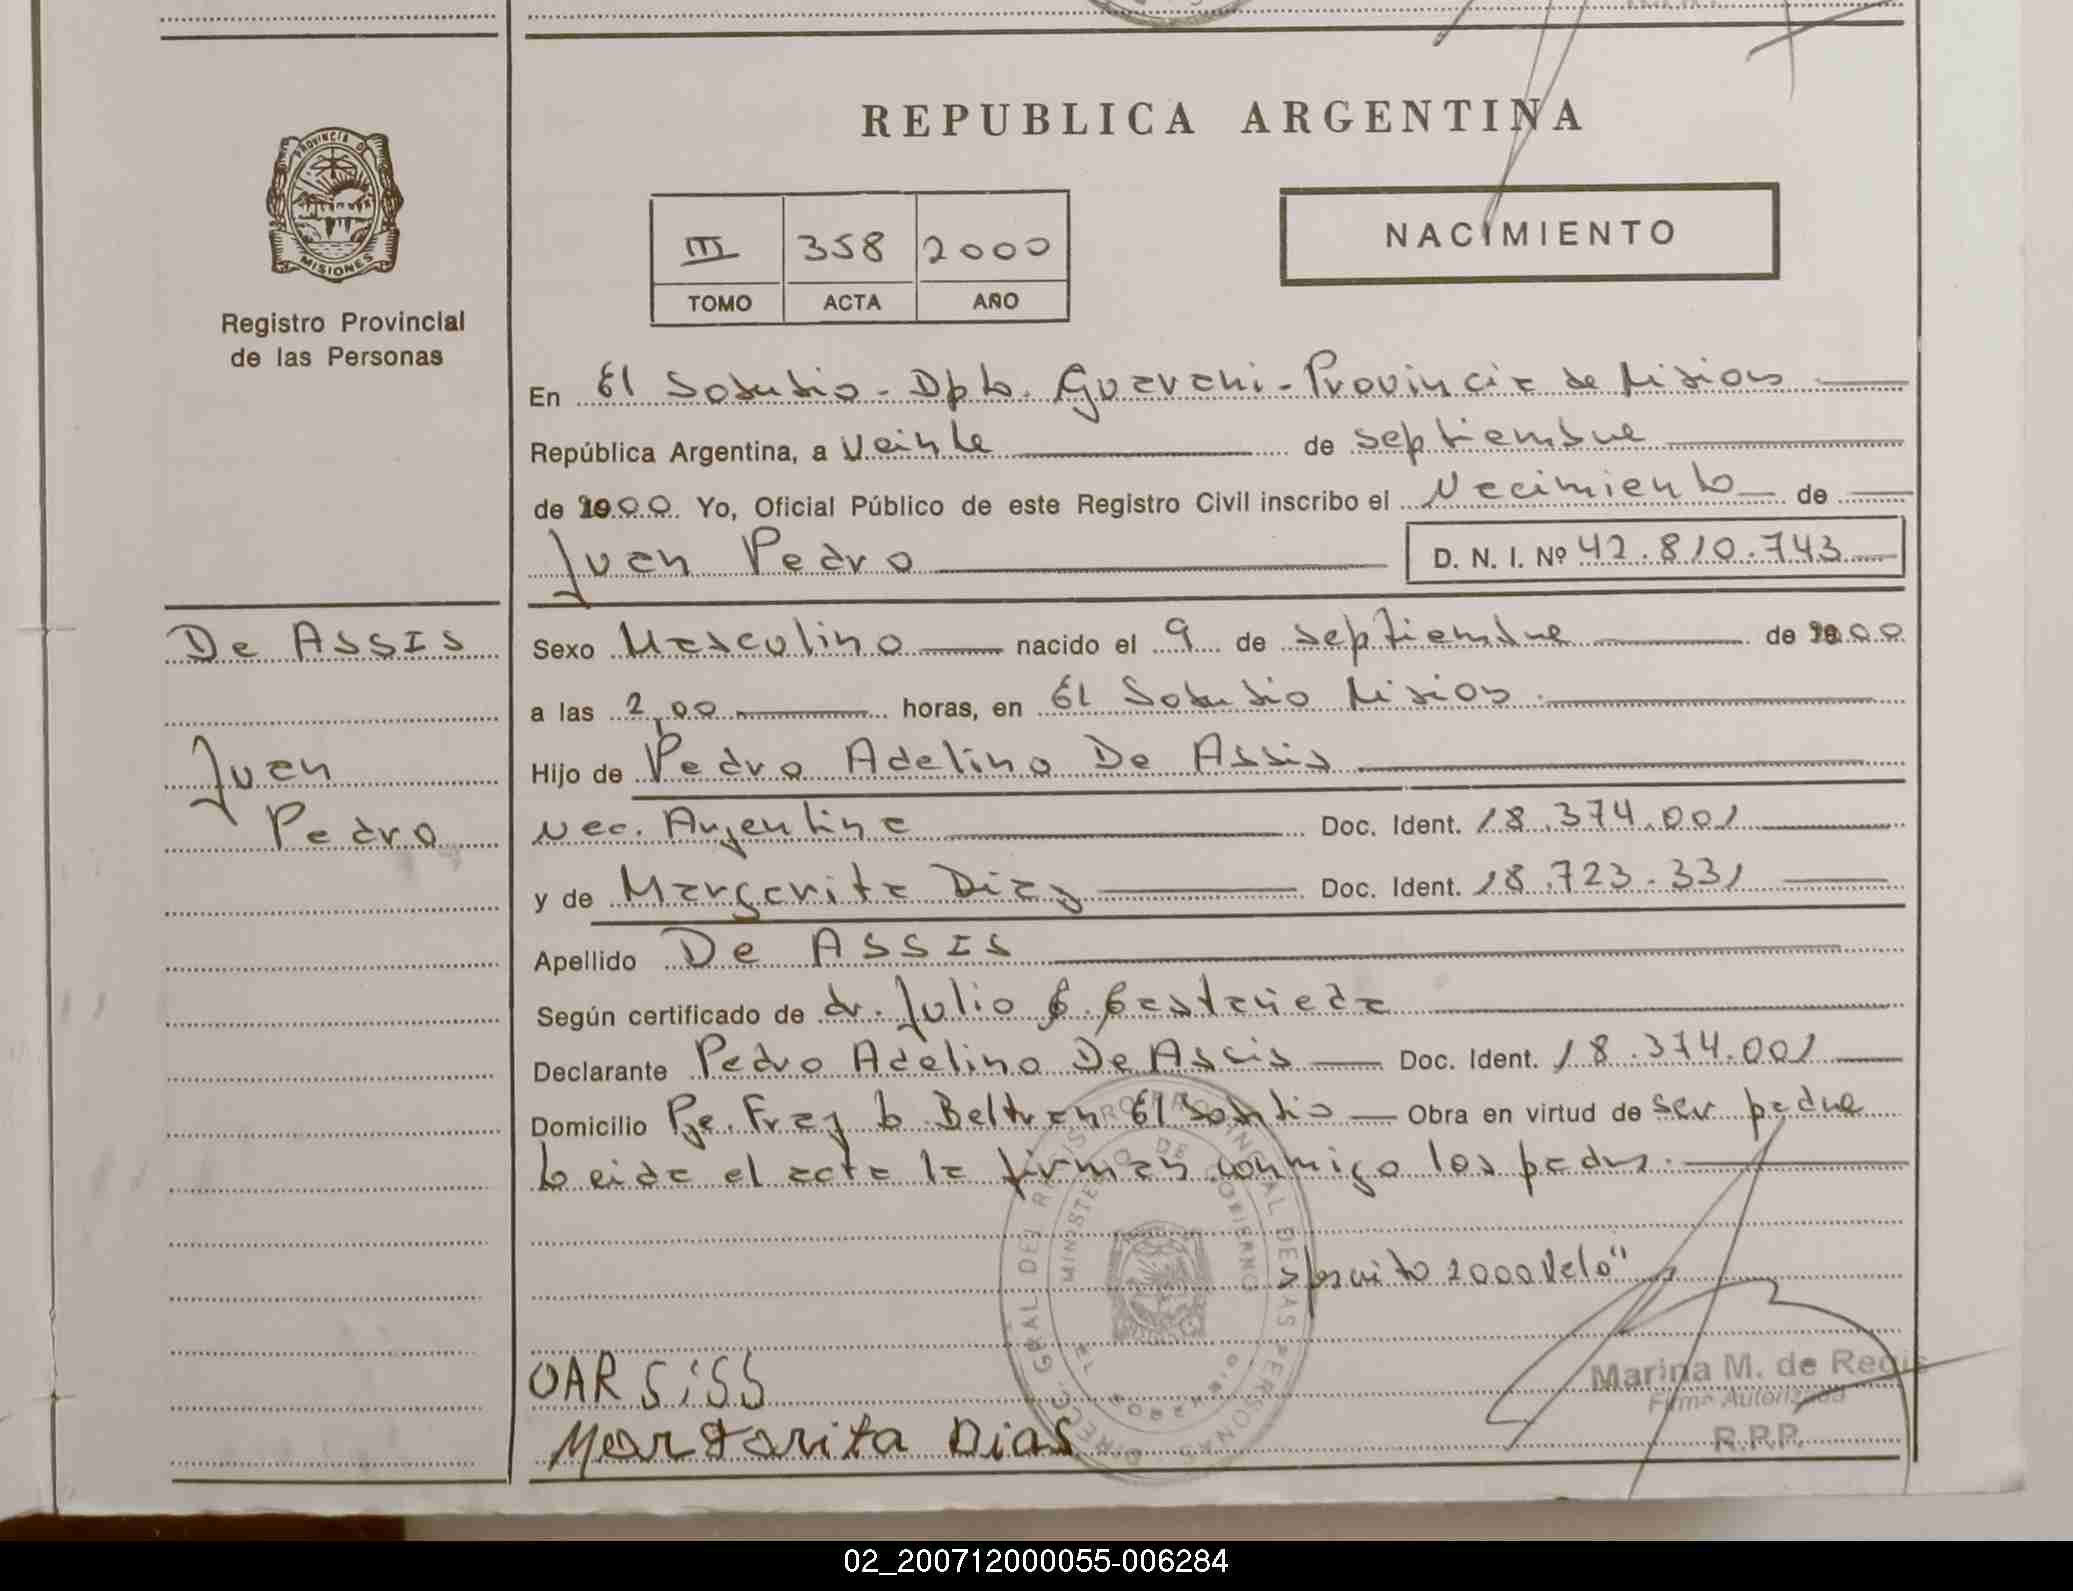 REPUBLICA ARGENTINA
PROVINCIA DE
MISIONES
Registro Provincial
de las Personas
III 358 2000
TOMO ACTA AÑO
NACIMIENTO
En El Soberbio - Dpto. Guarani - Provincia de Misiones
República Argentina, a veinte de septiembre
de 2000 Yo, Oficial Público de este Registro Civil inscribo el Nacimiento de
Juan Pedro D. N. I. Nº 42.810.743
De ASSIS
Juan
Pedro
Sexo Masculino nacido el 9 de septiembre de 2000
a las 2,00 horas, en El Soberbio Misiones
Hijo de Pedro Adelino De Assis
Nac. Argentina Doc. Ident. 18.374.001
y de Margarita Diaz Doc. Ident. 18.723.331
Apellido De ASSIS
Según certificado de dr. Julio C. Castañeda
Declarante Pedro Adelino De Assis Doc. Ident. 18.374.001
Domicilio Pje. Fray L. Beltran El Soberbio Obra en virtud de ser padre
Leida el acta la firman conmigo los padres.
2000 Vale"
DIRECC. GRAL DEL REGISTRO PROVINCIAL DE LAS PERSONAS
MINISTERIO DE GOBIERNO
Margarita Dias
Marina M. de Regis
Firma Autorizada
R.P.P.
02_200712000055-006284